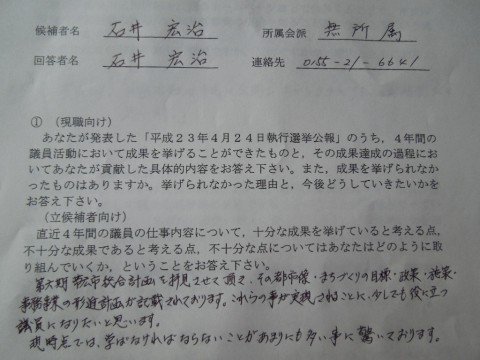 候補者名 石井 宏治 所属会派 無所属
回答者名 石井 宏治 連絡先 0155-21-6641
① (現職向け)
あなたが発表した「平成23年4月24日執行選挙公報」のうち，4年間の
議員活動において成果を挙げることができたものと，その成果達成の過程にお
いてあなたが貢献した具体的内容をお答え下さい。また，成果を挙げられなか
ったものはありますか。挙げられなかった理由と，今後どうしていきたいかを
お答え下さい。
(立候補者向け)
直近4年間の議員の仕事内容について，十分な成果を挙げていると考える点，
不十分な成果であると考える点，不十分な点についてはあなたはどのように取
り組んでいくか，ということをお答え下さい。
第六期 帯広市総合計画を拝見させて頂き、その都市像・まちづくりの目標・政策・施策・
事務事業の形で計画が記載されております。これらの事が実現されることに、少しでも役に立つ
議員になりたいと思います。
現時点では、学ばなければならないことがあまりにも多い事に驚いております。